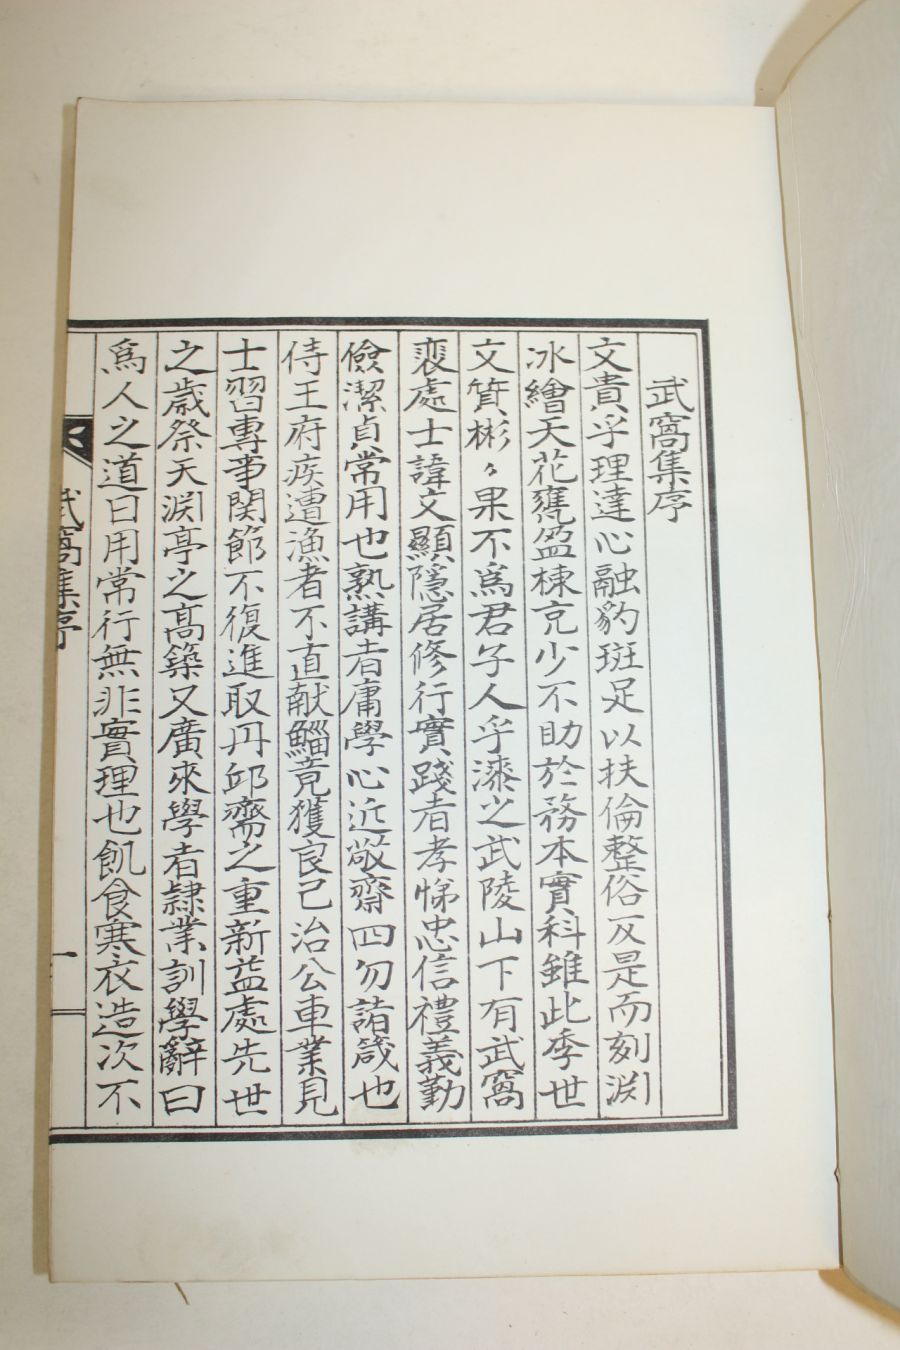 武窩集序
文貴乎理達心融豹斑足以扶倫整俗反是而刻淵
冰繪天花甕盈棟充少不助於務本實科雖此季世
文質彬〻果不爲君子人乎漆之武陵山下有武窩
裵處士諱文顯隱居修行實踐者孝悌忠信禮義勤
儉潔貞常用也熟講者庸學心近敬齋四勿諸箴也
侍王府疾遭漁者不直献鯔竟獲良己治公車業見
士習專爭関節不復進取丹邱齋之重新益處先世
之歲祭天淵亭之高築又廣來學者隷業訓學辭曰
爲人之道日用常行無非實理也飢食寒衣造次不
武窩集序
一